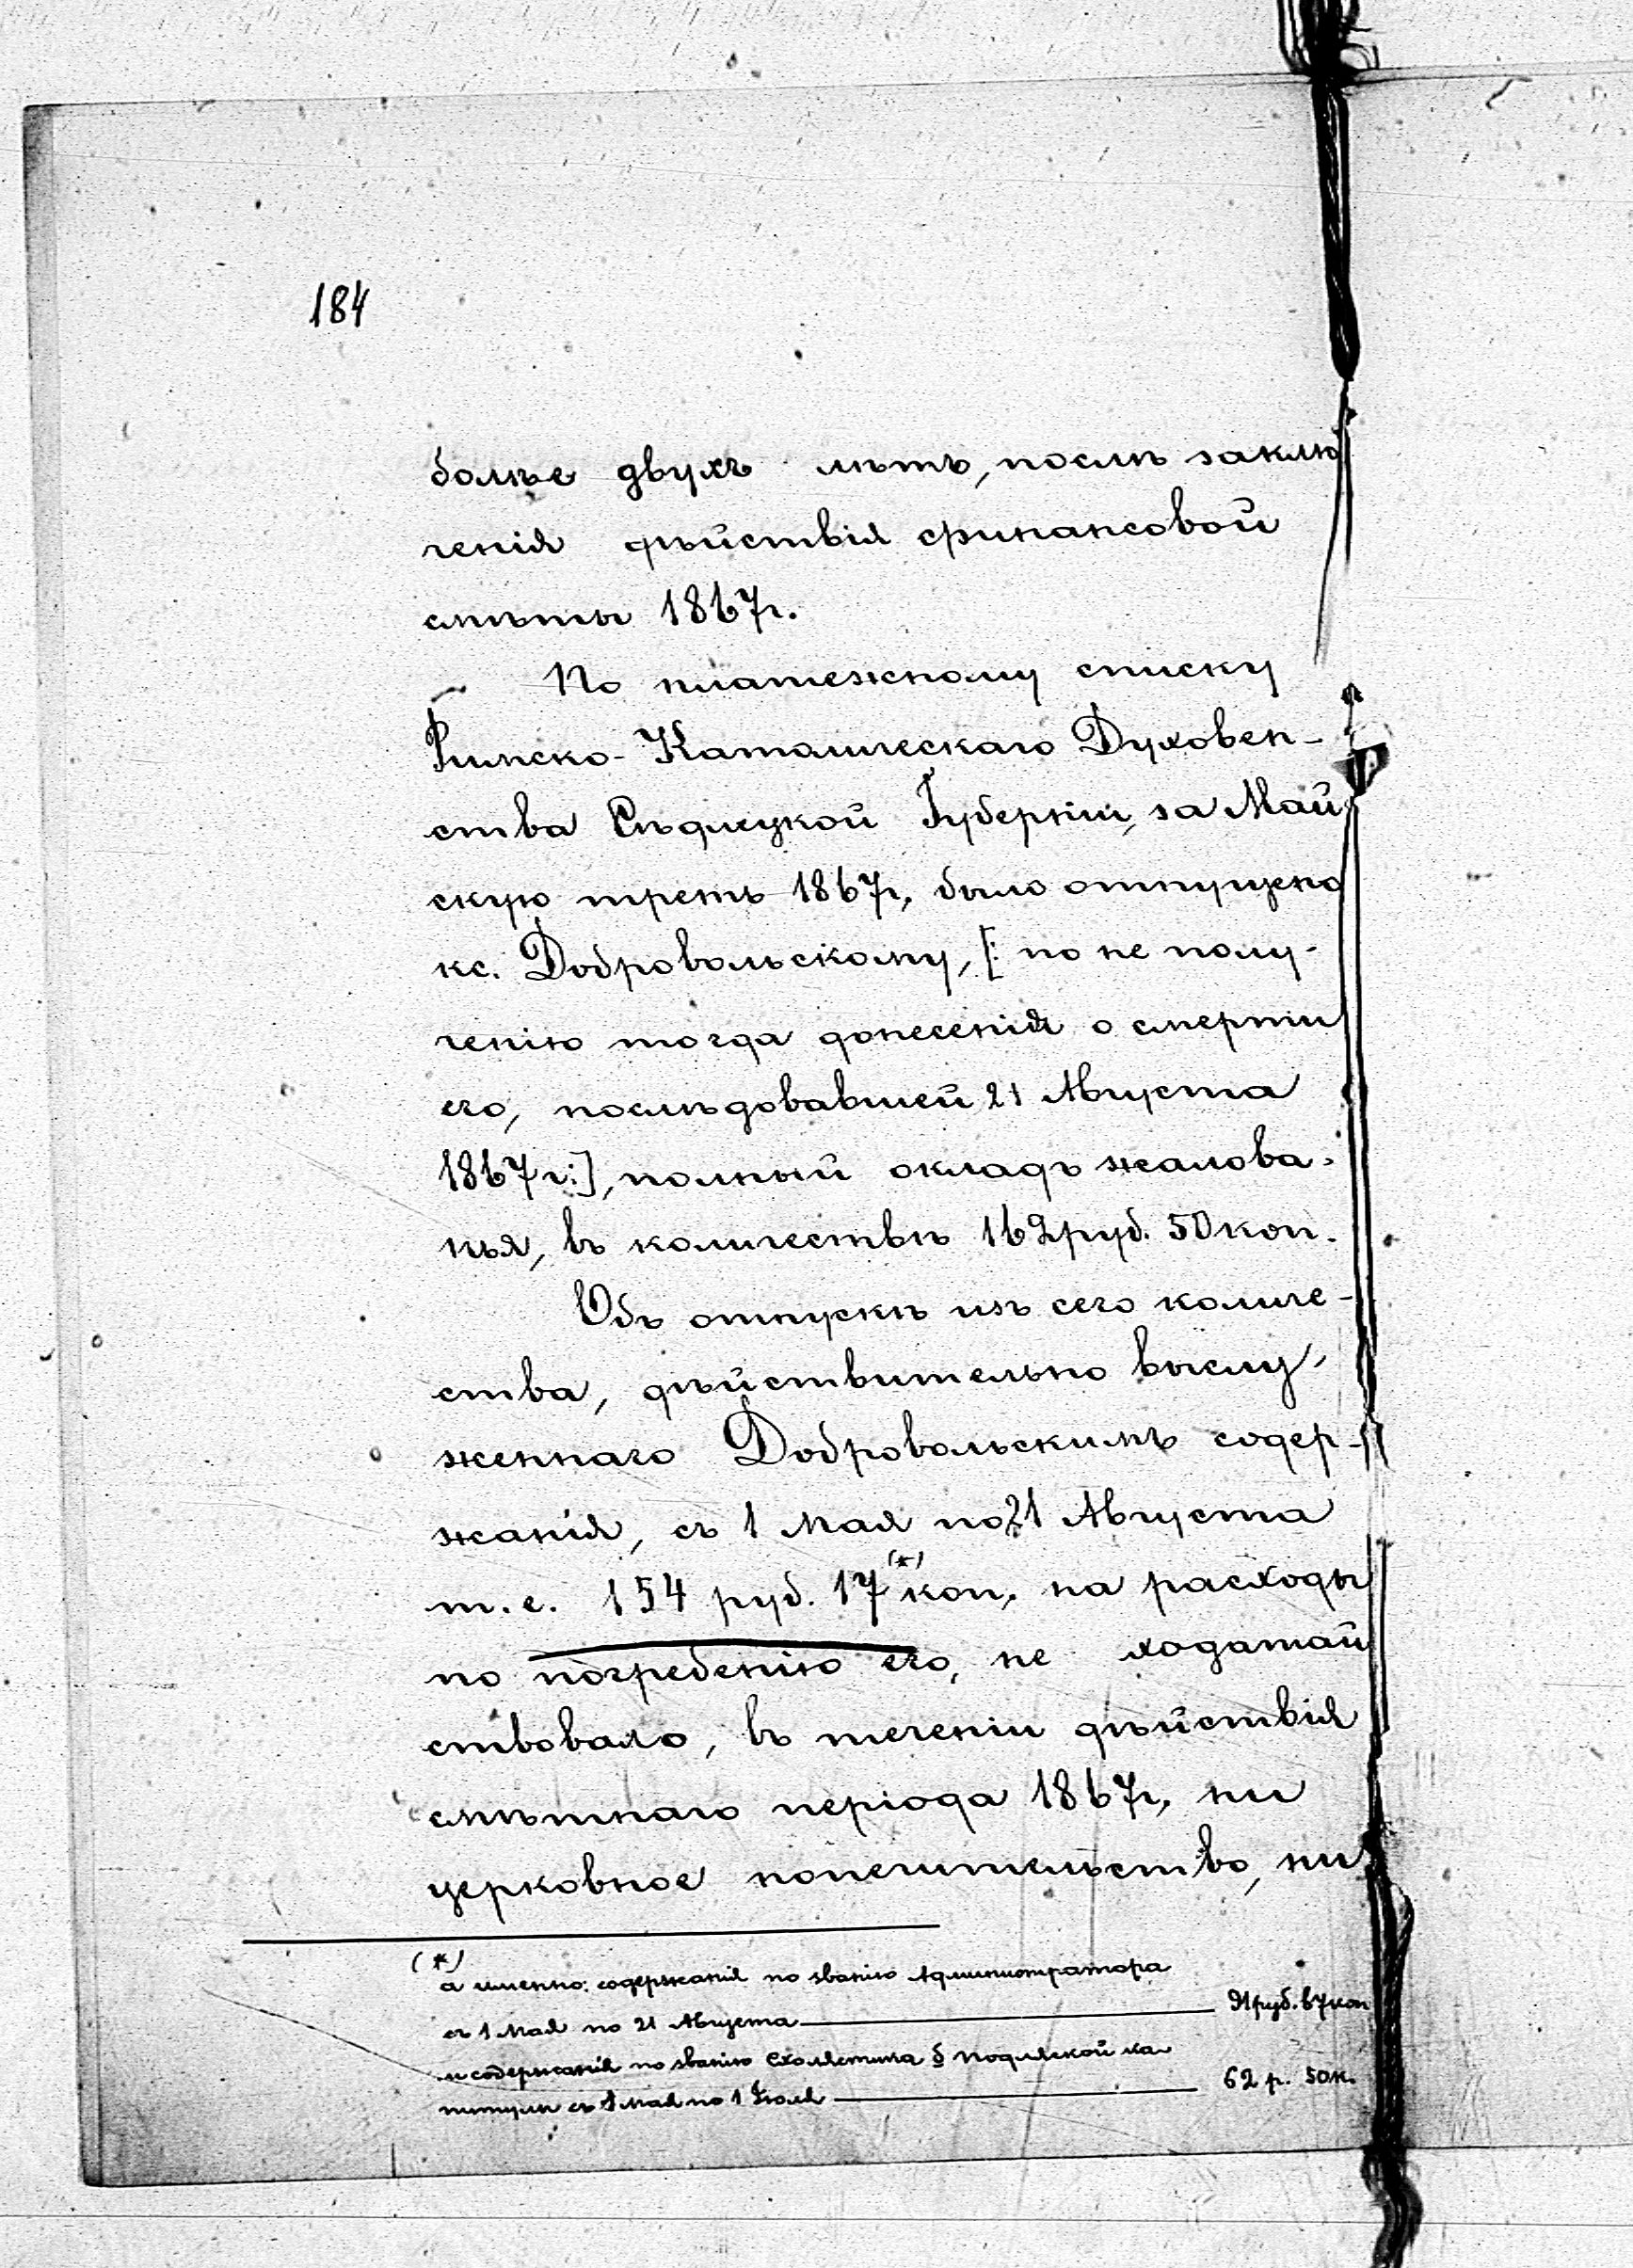 184
болѣе двухъ лѣтъ, послѣ заклю
ченія дѣйствія финансовой
смѣты 1867г.
По платежному списку
Римско-Католическаго Духовен-
ства Сѣдлецкой Губерніи, за Май
скую треть 1867г, было отпущено
кс. Добровольскому, [: по не полу-
ченію тогда донесенія о смерти
его, послѣдовавшей 21 Августа
1867 г:], полный окладъ жалова-
нья, въ количествѣ 162 руб. 50 коп.
Объ отпускѣ изъ сего количе-
ства, дѣйствительно выслу-
женнаго Добровольскимъ содер-
жанія, съ 1 Мая по 21 Августа
т.е. 154 руб. 17 (*) коп, на расходы
по погребенію его, не ходатай
ствовало, въ теченіи дѣйствія
смѣтнаго періода 1867г, ни
церковное попечительство, ни
(*)
а именно: содержанія по званію Администратора
съ 1 Мая по 21 Августа 91 руб. 67 коп
и содержанія по званію Схолястика б Подляской ка
питулы съ 1 Мая по 1 Іюля 62 р. 50 к.